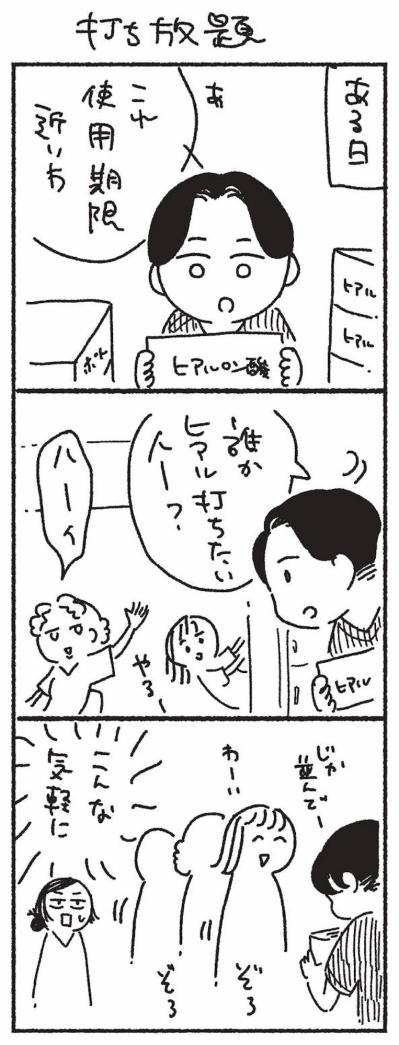 打ち放題
ある日
あ
これ
使用期限
近いわ
ヒアル
ヒアル
ヒアルロン酸
ボト
誰か
ヒアル打ちたい
人ー?
ハーイ
やる
ヒアル
じゃ
並んでー
わーい
ぞろ
ぞろ
こんな
気軽に